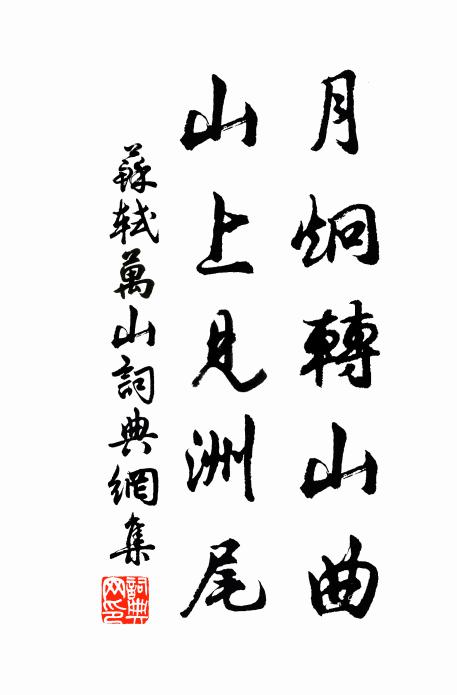 月炯轉山曲
山上見洲尾
蘇軾萬山詞典網集
詞典網印